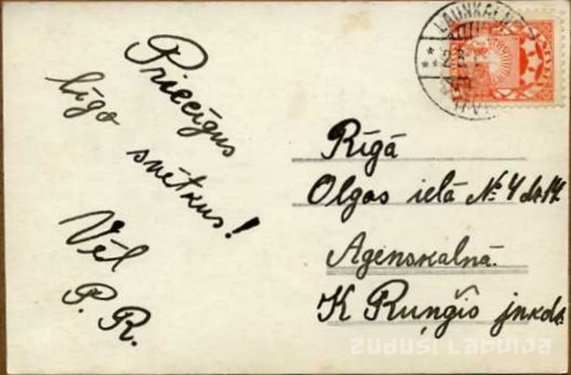 Priecīgus
līgo svētkus!
Vēl
P. R.
LAUNKALNE
Rīgā
Olgas ielā № 4 dz. 14.
Agenskalnā.
K Ruņģis jnkdz.
zudusi Latvija